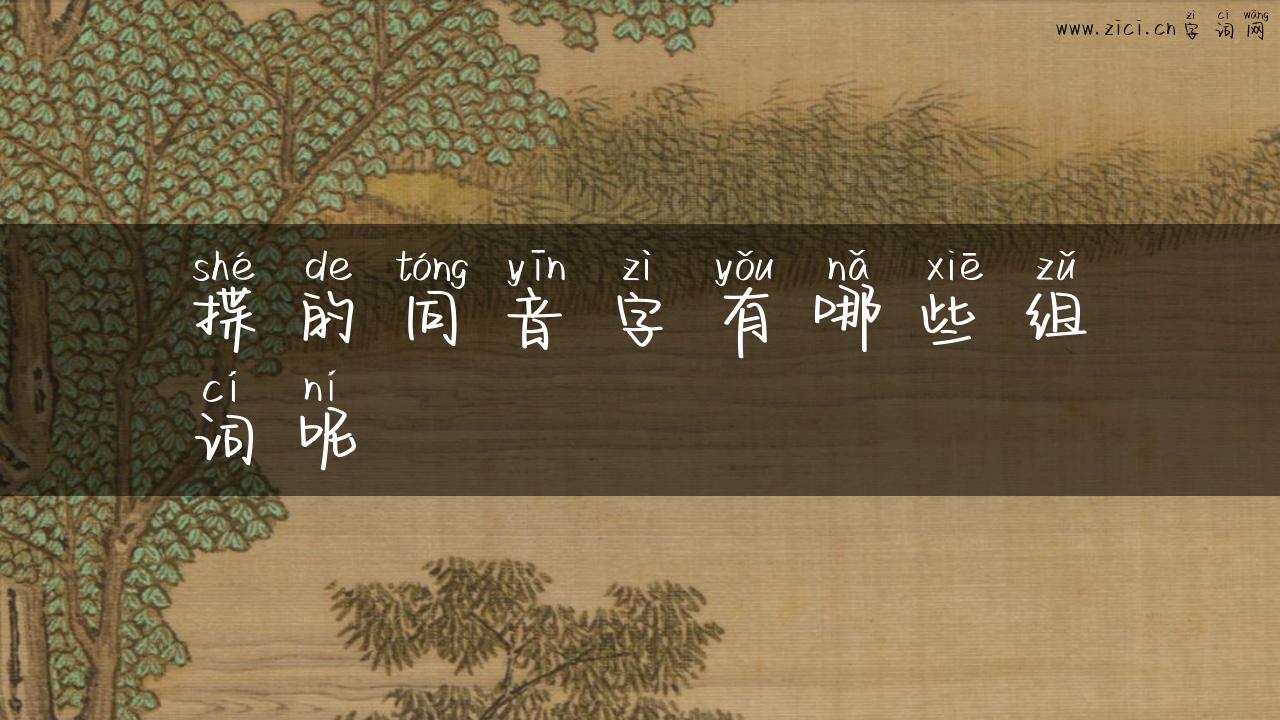 zì cí wǎng
www.zici.cn字词网
shé de tóng yīn zì yǒu nǎ xiē zǔ
揲的同音字有哪些组
cí ní
词呢